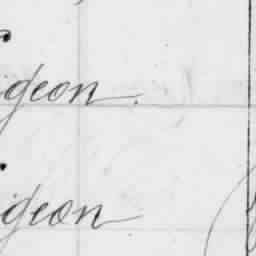 igeon.
igeon